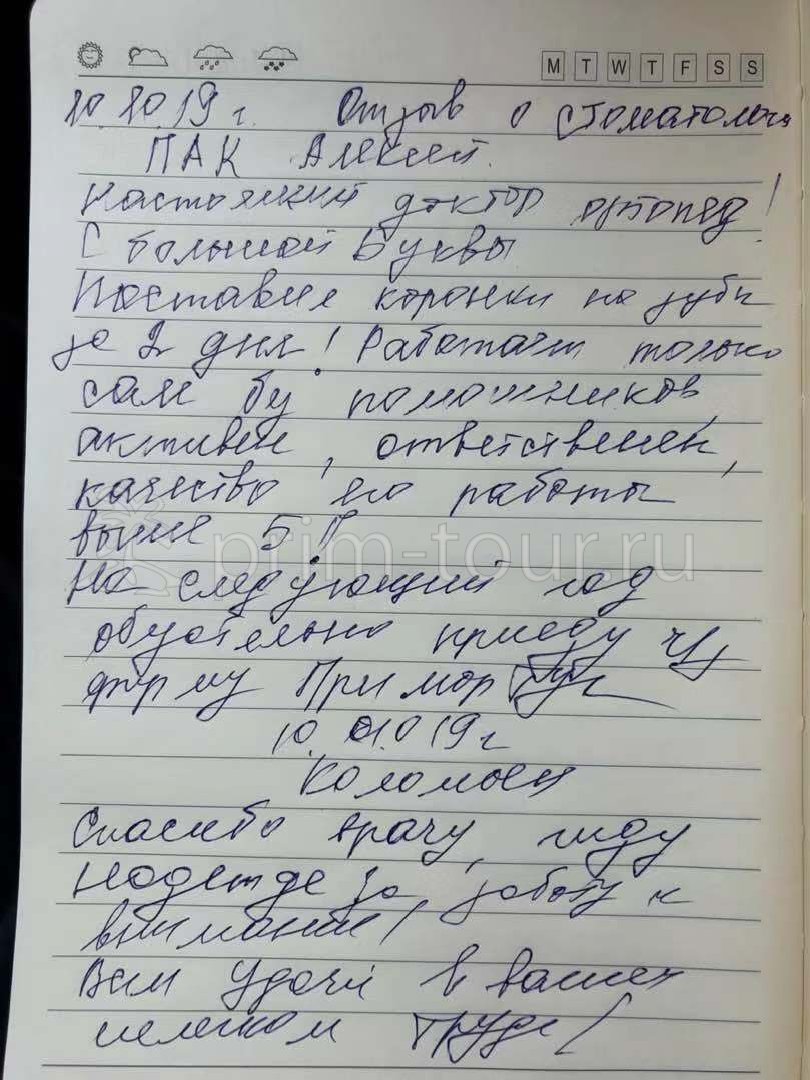 M T W T F S S
10.10.19 г. Отзыв о стоматологе
ПАК Алексей.
Настоящий доктор ортопед!
С большой Буквы
Поставил коронки на зубы
за 2 дня! Работает только
сам без помошников,
активен, ответственен,
качество его работы
выше 5!!
prim-tour.ru
На следующий год
обязательно приеду чз
фирму Примортур
10.10.019 г
Коломыец
Спасибо врачу, гиду
Надежде за заботу и
внимание!
Вам удачи в вашем
нелегком труде!